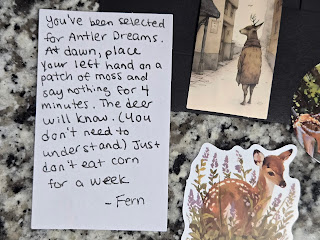 You've been selected
for Antler Dreams.
At dawn, place
your left hand on a
patch of moss and
say nothing for 4
minutes. The deer
will know. (You
don't need to
understand) Just
don't eat corn
for a week
- Fern